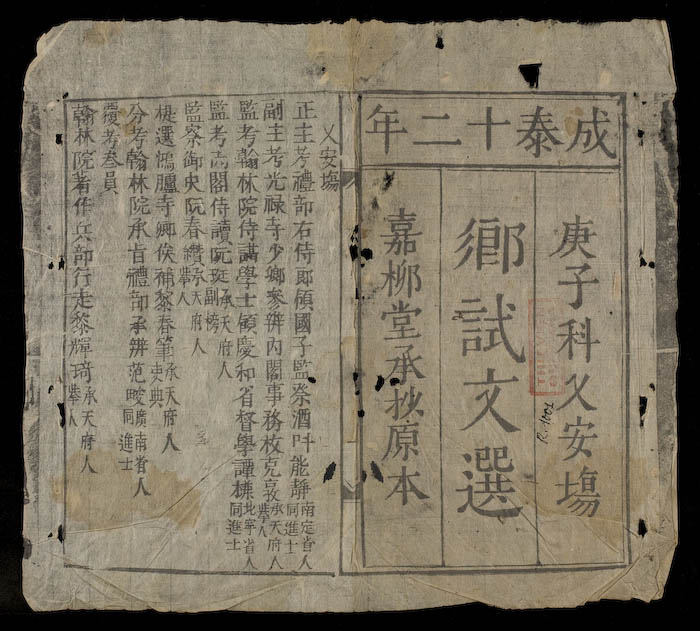 成泰十二年
庚子科乂安塲
鄉試文選
嘉柳堂承抄原本
R.1001
乂安塲
正主考禮部右侍郎領國子監祭酒叶能靜南定省人同進士
副主考光禄寺少卿參辨內閣事務枚克敦承天府人舉人
監考翰林院侍講學士領慶和省督學譚樣北寧省人同進士
監考高閣侍讀阮珽承天府人副榜
監察御史阮春纘承天府人舉人
提選鴻臚寺卿侯補黎春筆承天府人吏典
分考翰林院承旨禮部承辨范畯廣南省人同進士
覆考叁員
翰林院著作兵部行走黎輝琦承天府人舉人